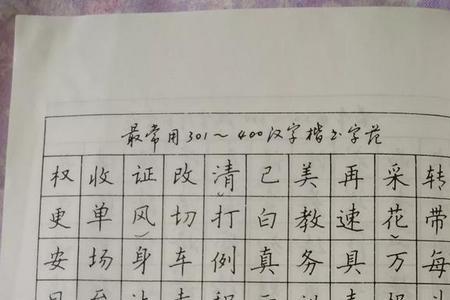 最常用301~400汉字楷书字范
权收证改清己美再采转
更单风切打白教速花带
安场身车例真务具万每